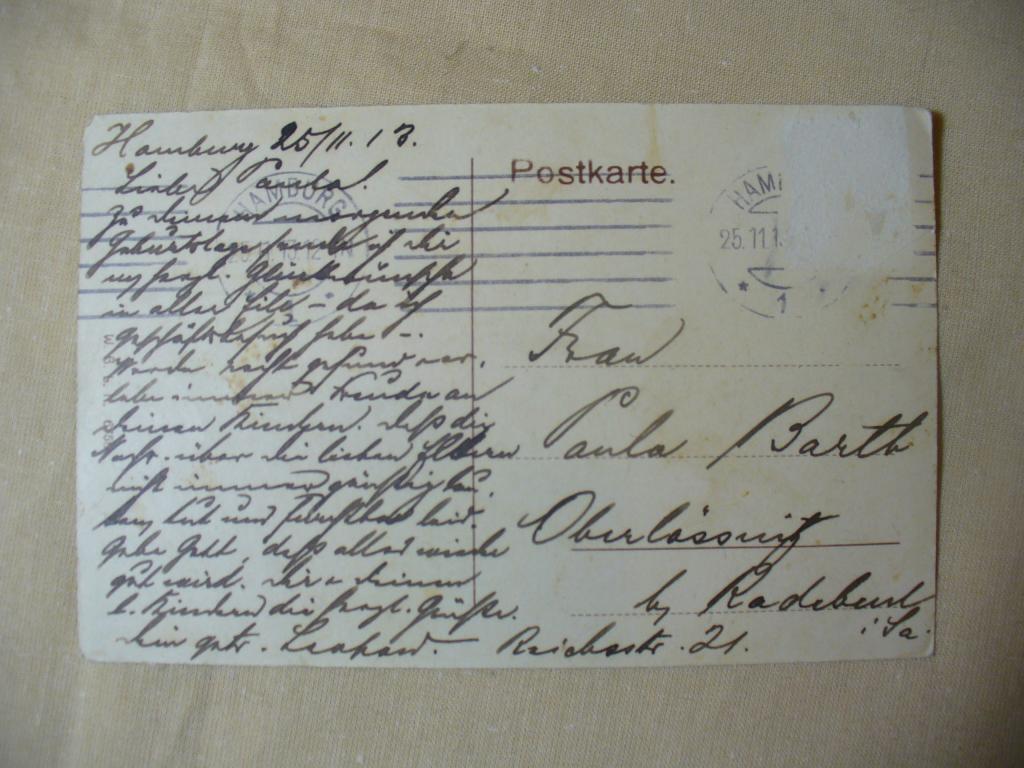 Hamburg 25/11.13.
Liebe Paula!
zu Deinem morgenden
Geburtstage sende ich Dir
m/ herzl. Glückwünsche
in aller Eile – da ich
Geschäftsbesuch habe –.
Werde recht gesund
habe immer Freude an
Deinen Kindern. Daß die
Nachr. über die lieben Eltern
nicht immer günstig
thut uns furchtbar leid.
Gebe Gott, daß alles wieder
gut wird. Dir u Deinen
l. Kindern die herzl. Grüße.
Dein getr.
Postkarte.
HAMBURG
HAM
25.11.1
1
Frau
Paula Barth
Oberlössnitz
b/ Radebeul
i/Sa.
Reichsstr. 21.